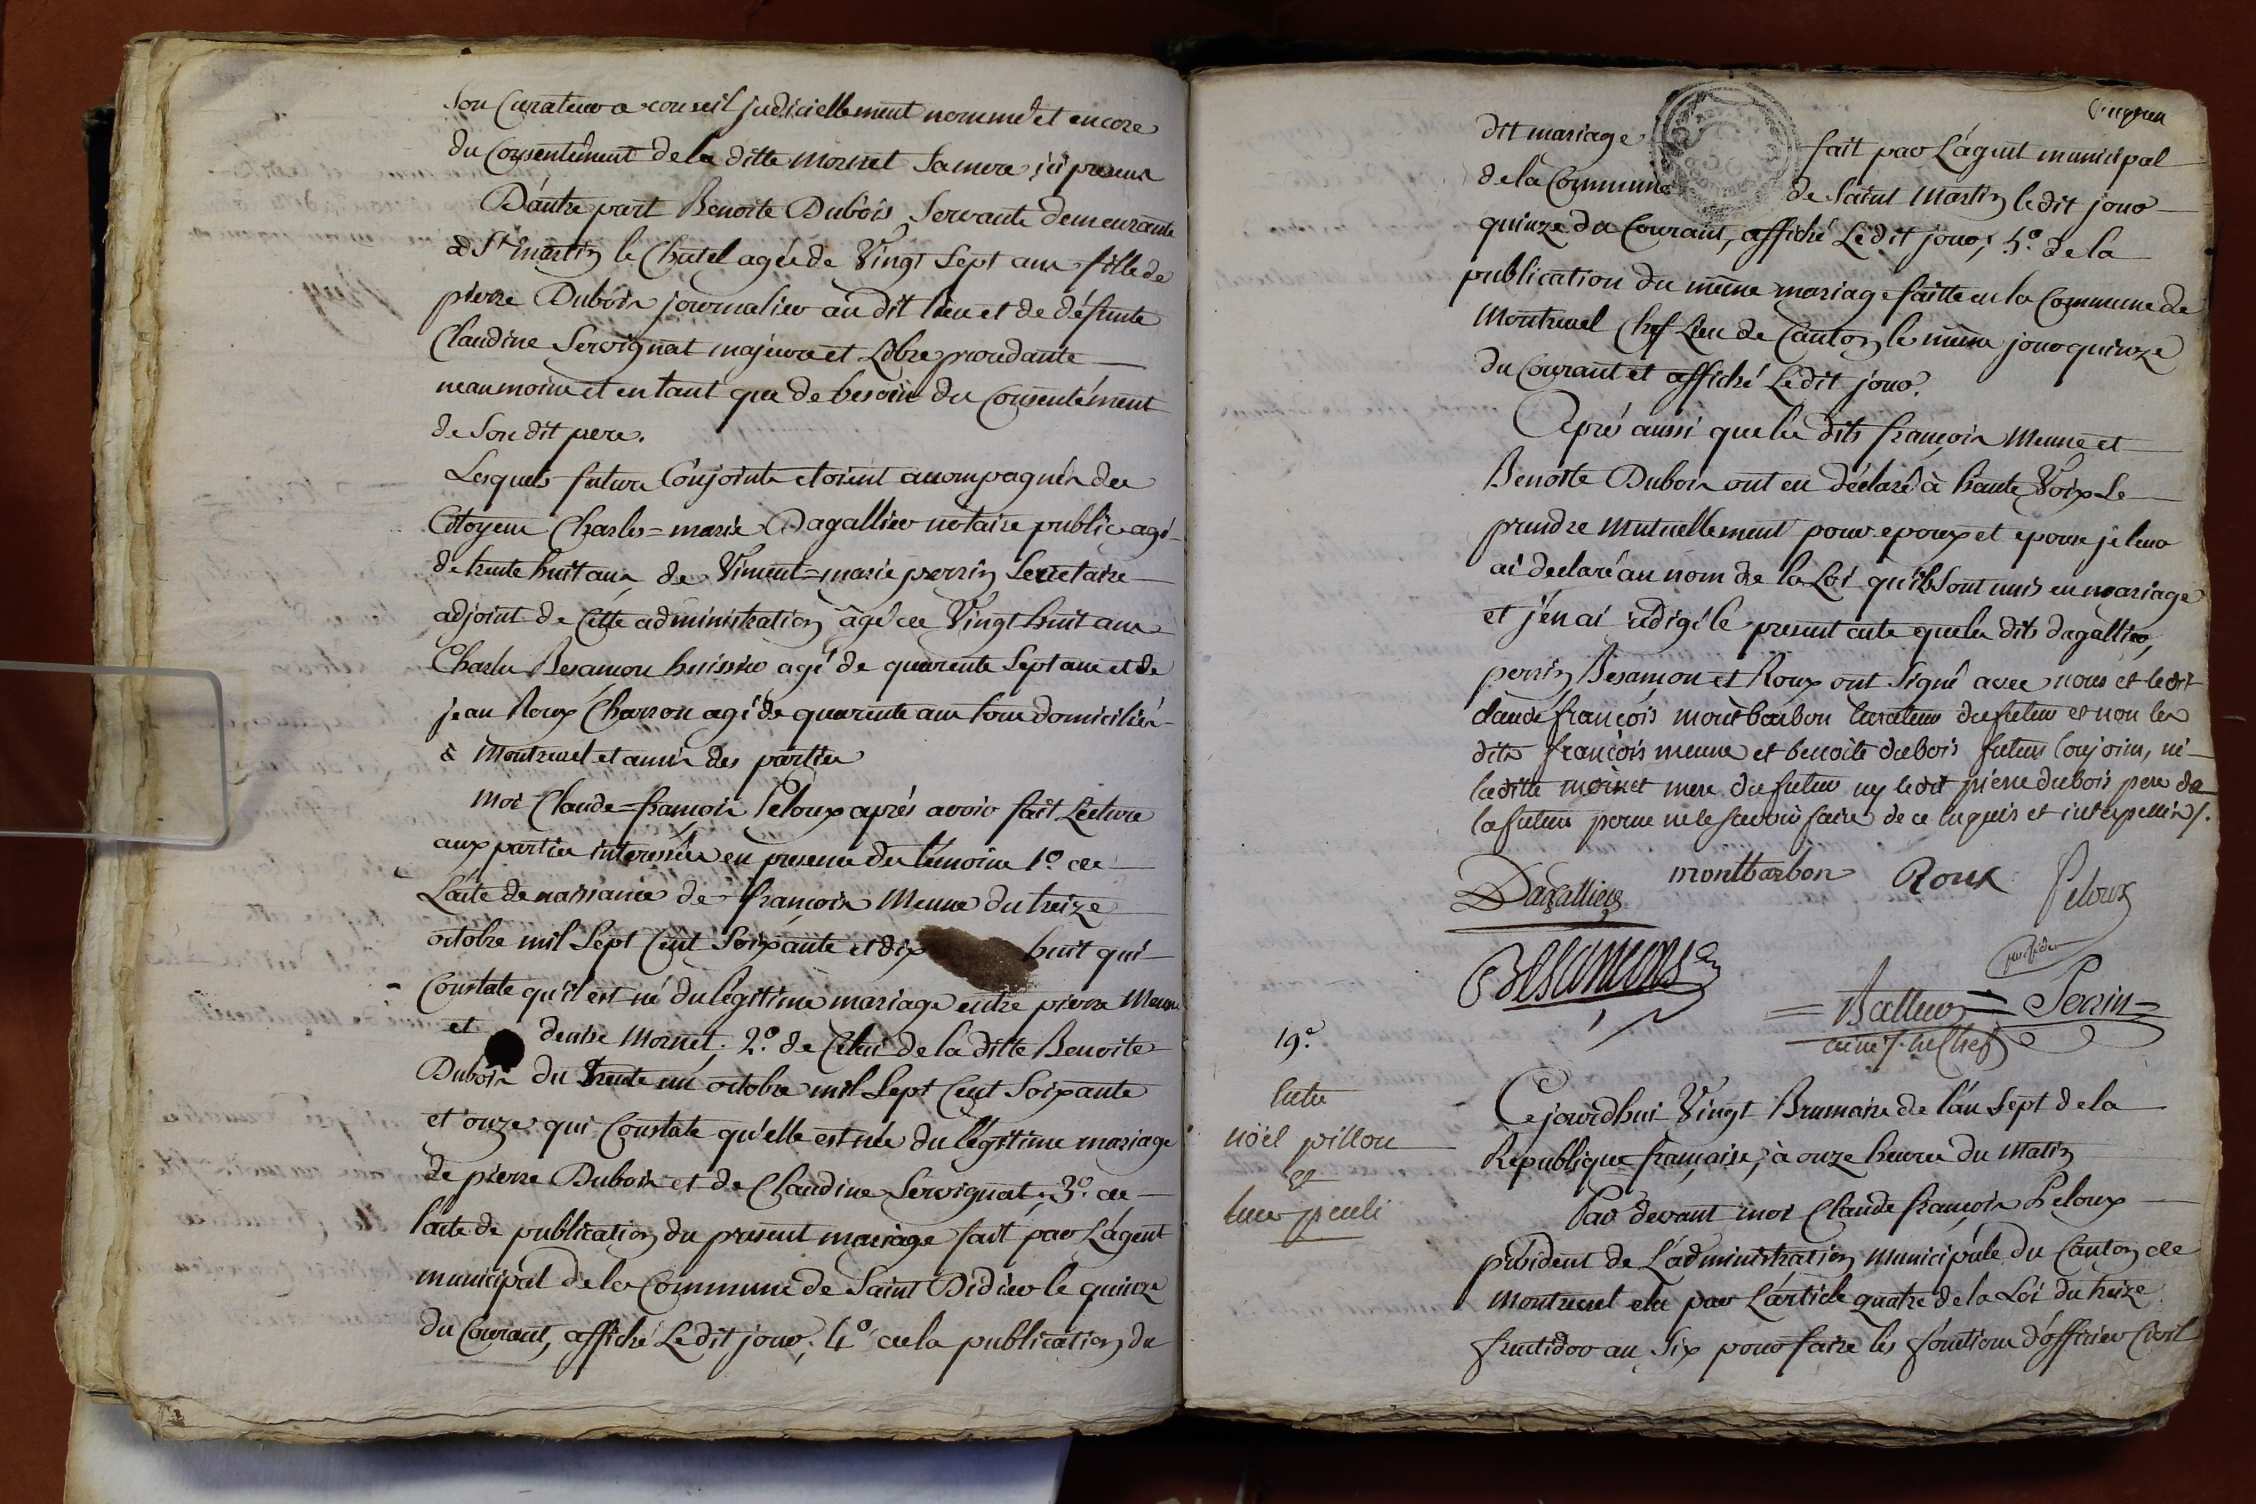 Son Curateur a conseil judiciellement nommé et encore
du Consentement de la ditte Mornet Sa mere ici presens
D'autre part Benoite Dubois Servante demeurante
a St Martin le Chatel agée de Vingt Sept ans fille de
pierre Dubois journalier au dit lieu et de défunte
Claudine Servignat majeure et Libre procedante
neanmoins et en tant que de besoin du Consentement
de Son dit pere.
Lesquels futurs Conjoints etoient accompagnés des
Citoyens Charles=marie Dagallier notaire public agé
de trente huit ans, de Vincent=marie perrin Secretaire
adjoint de Cette administration âgé de Vingt huit ans
Charles Besancon huissier agé de quarente Sept ans et de
jean Roux Charron agé de quarente ans tous domiciliés
à Montrevel et amis des parties
Moi Claude=françois Peloux aprés avoir fait Lecture
aux parties interessées en presence des témoins 1º. de
L'acte de naissance de françois Menne du treize
octobre mil Sept Cent Soixante et dix huit qui
Constate qu'il est né du légitime mariage entre pierre Menne
et denise Mornet. 2º. de Celui de la ditte Benoite
Dubois du trente un octobre mil Sept Cent Soixante
et onze qui Constate qu'elle est née du légitime mariage
de pierre Dubois et de Claudine Servignat. 3º. de
l'acte de publication du present mariage fait par L'agent
municipal de la Commune de Saint Didier le quinze
du Courant, affiché Le dit jour. 4º de la publication du
dit mariage fait par L'agent municipal
de la Commune de Saint Martin le dit jour
quinze du Courant, affiché Le dit jour, 5º. de la
publication du même mariage faitte en la Commune de
Montrevel Chef Lieu de Canton le même jour quinze
du Courant et affiché Le dit jour.
Aprés aussi que les dits françois Menne et
Benoite Dubois ont eu déclaré à haute Voix Se
prendre Mutuellement pour epoux et epouse je leur
ai declaré au nom de la Loi qu'ils Sont unis en mariage
et j'en ai redigé le present acte que les dits dagallier,
perrin, Besançon et Roux ont Signé avec nous et le dit
claude françois montbarbon Curateur du futur et non les
dits françois menne et benoite dubois futurs Conjoins, ni
la ditte mornet mere du futur ny le dit pierre dubois pere de
la future pour ne le scavoir faire de ce enquis et interpellés /.
Dagallier montbarbon Roux Peloux
Besancon
president
=Balleur= =Perrin=
19.e
Entre
noël pillon
et
Ce jourd'hui Vingt Brumaire de l'an Sept de la
Republique française, à onze heures du Matin
Par devant moi Claude françois Peloux
président de L'administration Municipale du Canton de
Montrevel elu par L'article quatre de la Loi du treize
fructidor an Six pour faire les fonctions d'officier Civil